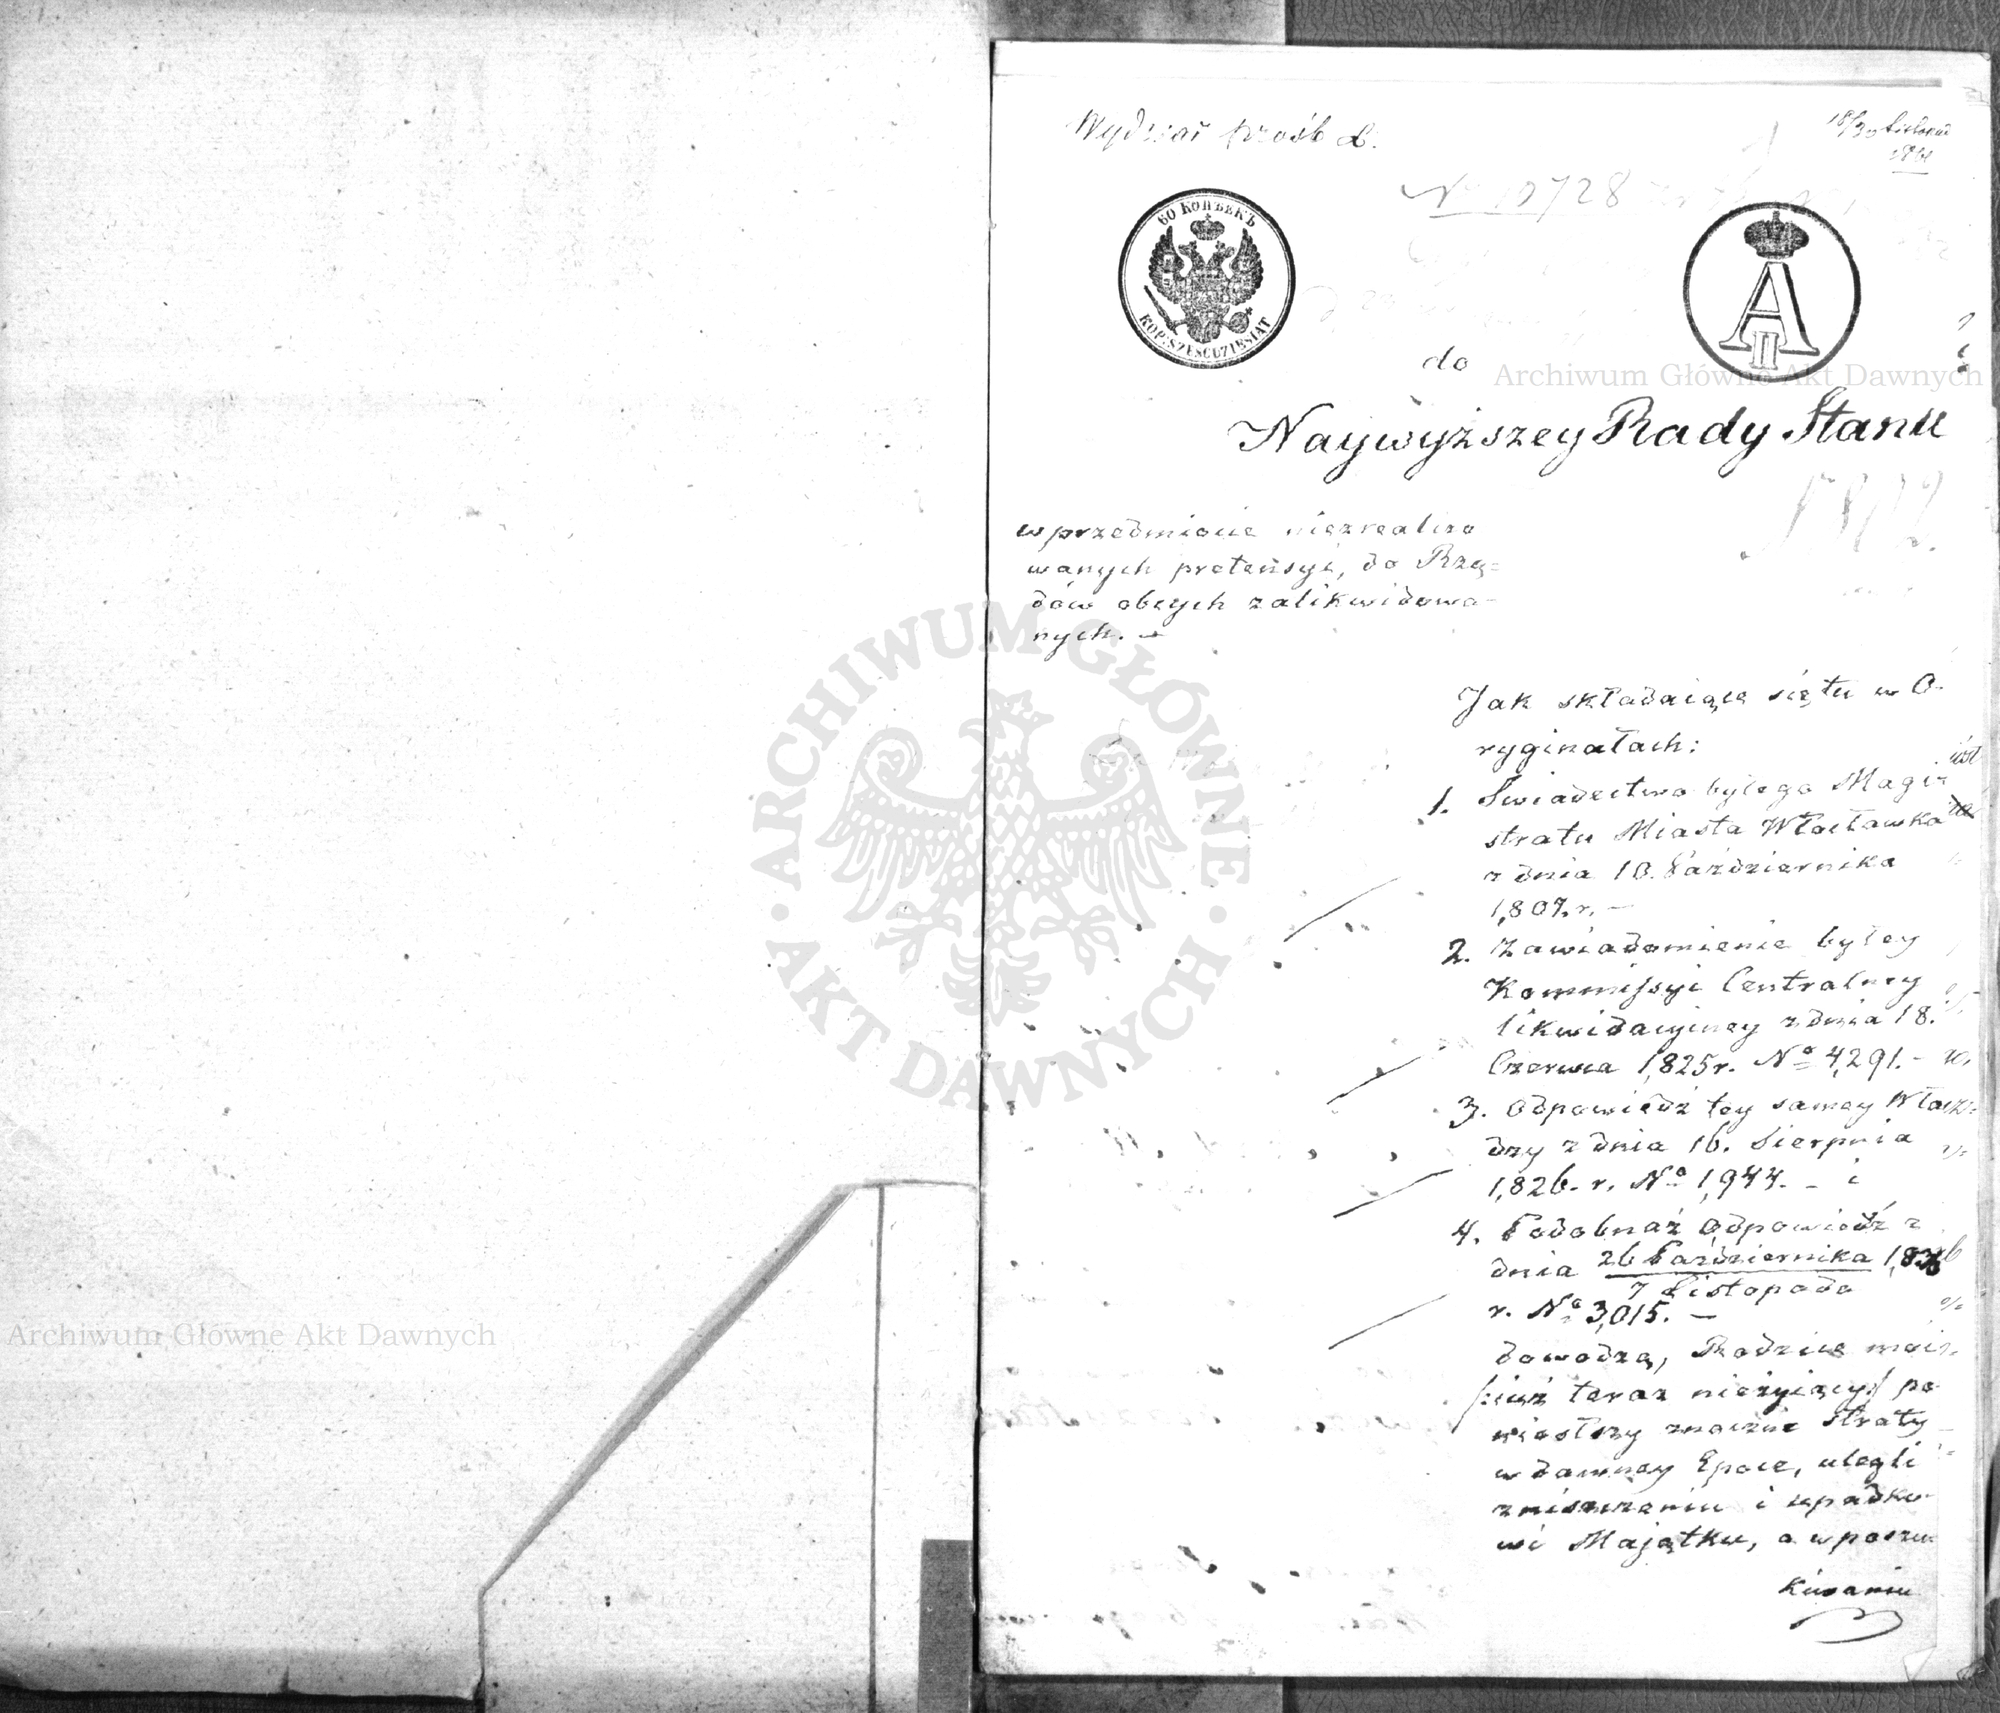 Wydział próśb
18/30 Listopad
1861
60 КОПѢЕКЪ
KOP: SZEŚĆDZIESIĄT
A
II
do
Naywyższey Rady Stanu
w przedmiocie niezrealizo
wanych pretensyi, do Rzą=
dów obcych zalikwidowa-
nych. -
Jak składaiące się tu w O-
ryginałach:
1. Świadectwo byłego Magi-
stratu Miasta Włocławka
z dnia 10. Października
1,807. r. -
2. Zawiadomienie byłey
Kommissyi Centralney
likwidacyiney z dnia 18.
Czerwca 1,825 r. No 4,291. -
3. Odpowiedź tey samey Wła-
dzy z dnia 16. Sierpnia
1,826. r. No 1,944. - i
4. Podobnaż Odpowiedź z
dnia 26 Października
7 Listopada
r. No 3,015. -
dowodzą, Rodzice moi
/:iuż teraz nieżyiący:/ po
niosłszy znaczne straty
w dawney Epoce, ulegli
zniszczeniu i upadko-
wi Majątku, a w poszu
kiwaniu
Archiwum Główne Akt Dawnych
Archiwum Główne Akt Dawnych
ARCHIWUM GŁÓWNE · AKT DAWNYCH ·